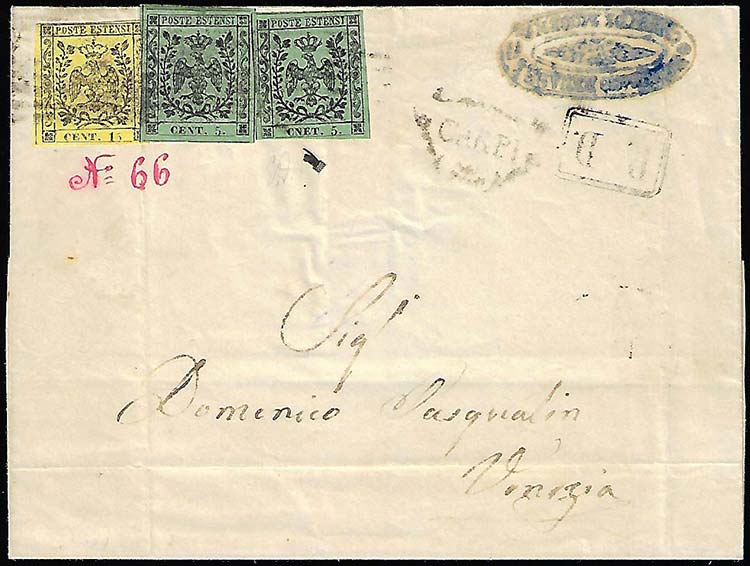 POSTE ESTENSI
CENT. 15.
POSTE ESTENSI
CENT. 5.
POSTE ESTENSI
CNET. 5.
CARPI
P. D.
No 66
Sig.r
Domenico Pasqualin
Venezia